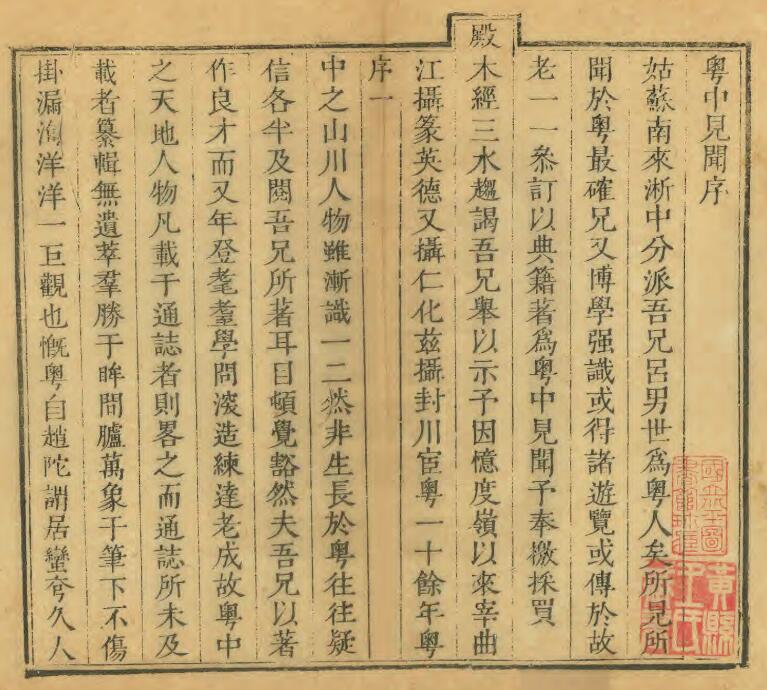 粤中見聞序
姑蘇南來淅中分派吾兄呂男世爲粤人矣所見所
聞於粤最確兄又博學强識或得諸遊覽或傳於故
老一一叅訂以典籍著爲粤中見聞予奉檄採買
殿
木經三水趨謁吾兄舉以示予因憶度嶺以來宰曲
江攝篆英德又攝仁化兹攝封川宦粤一十餘年粤
序一
中之山川人物雖漸識一二然非生長於粤往往疑
信各半及閱吾兄所著耳目頓覺豁然夫吾兄以著
作良才而又年登耄耋學問滚造練達老成故粤中
之天地人物凡載于通誌者則畧之而通誌所未及
載者纂輯無遺萃羣勝于眸間臚萬象于筆下不傷
掛漏洵洋洋一巨觀也慨粤自趙陀謂居蠻夸久人